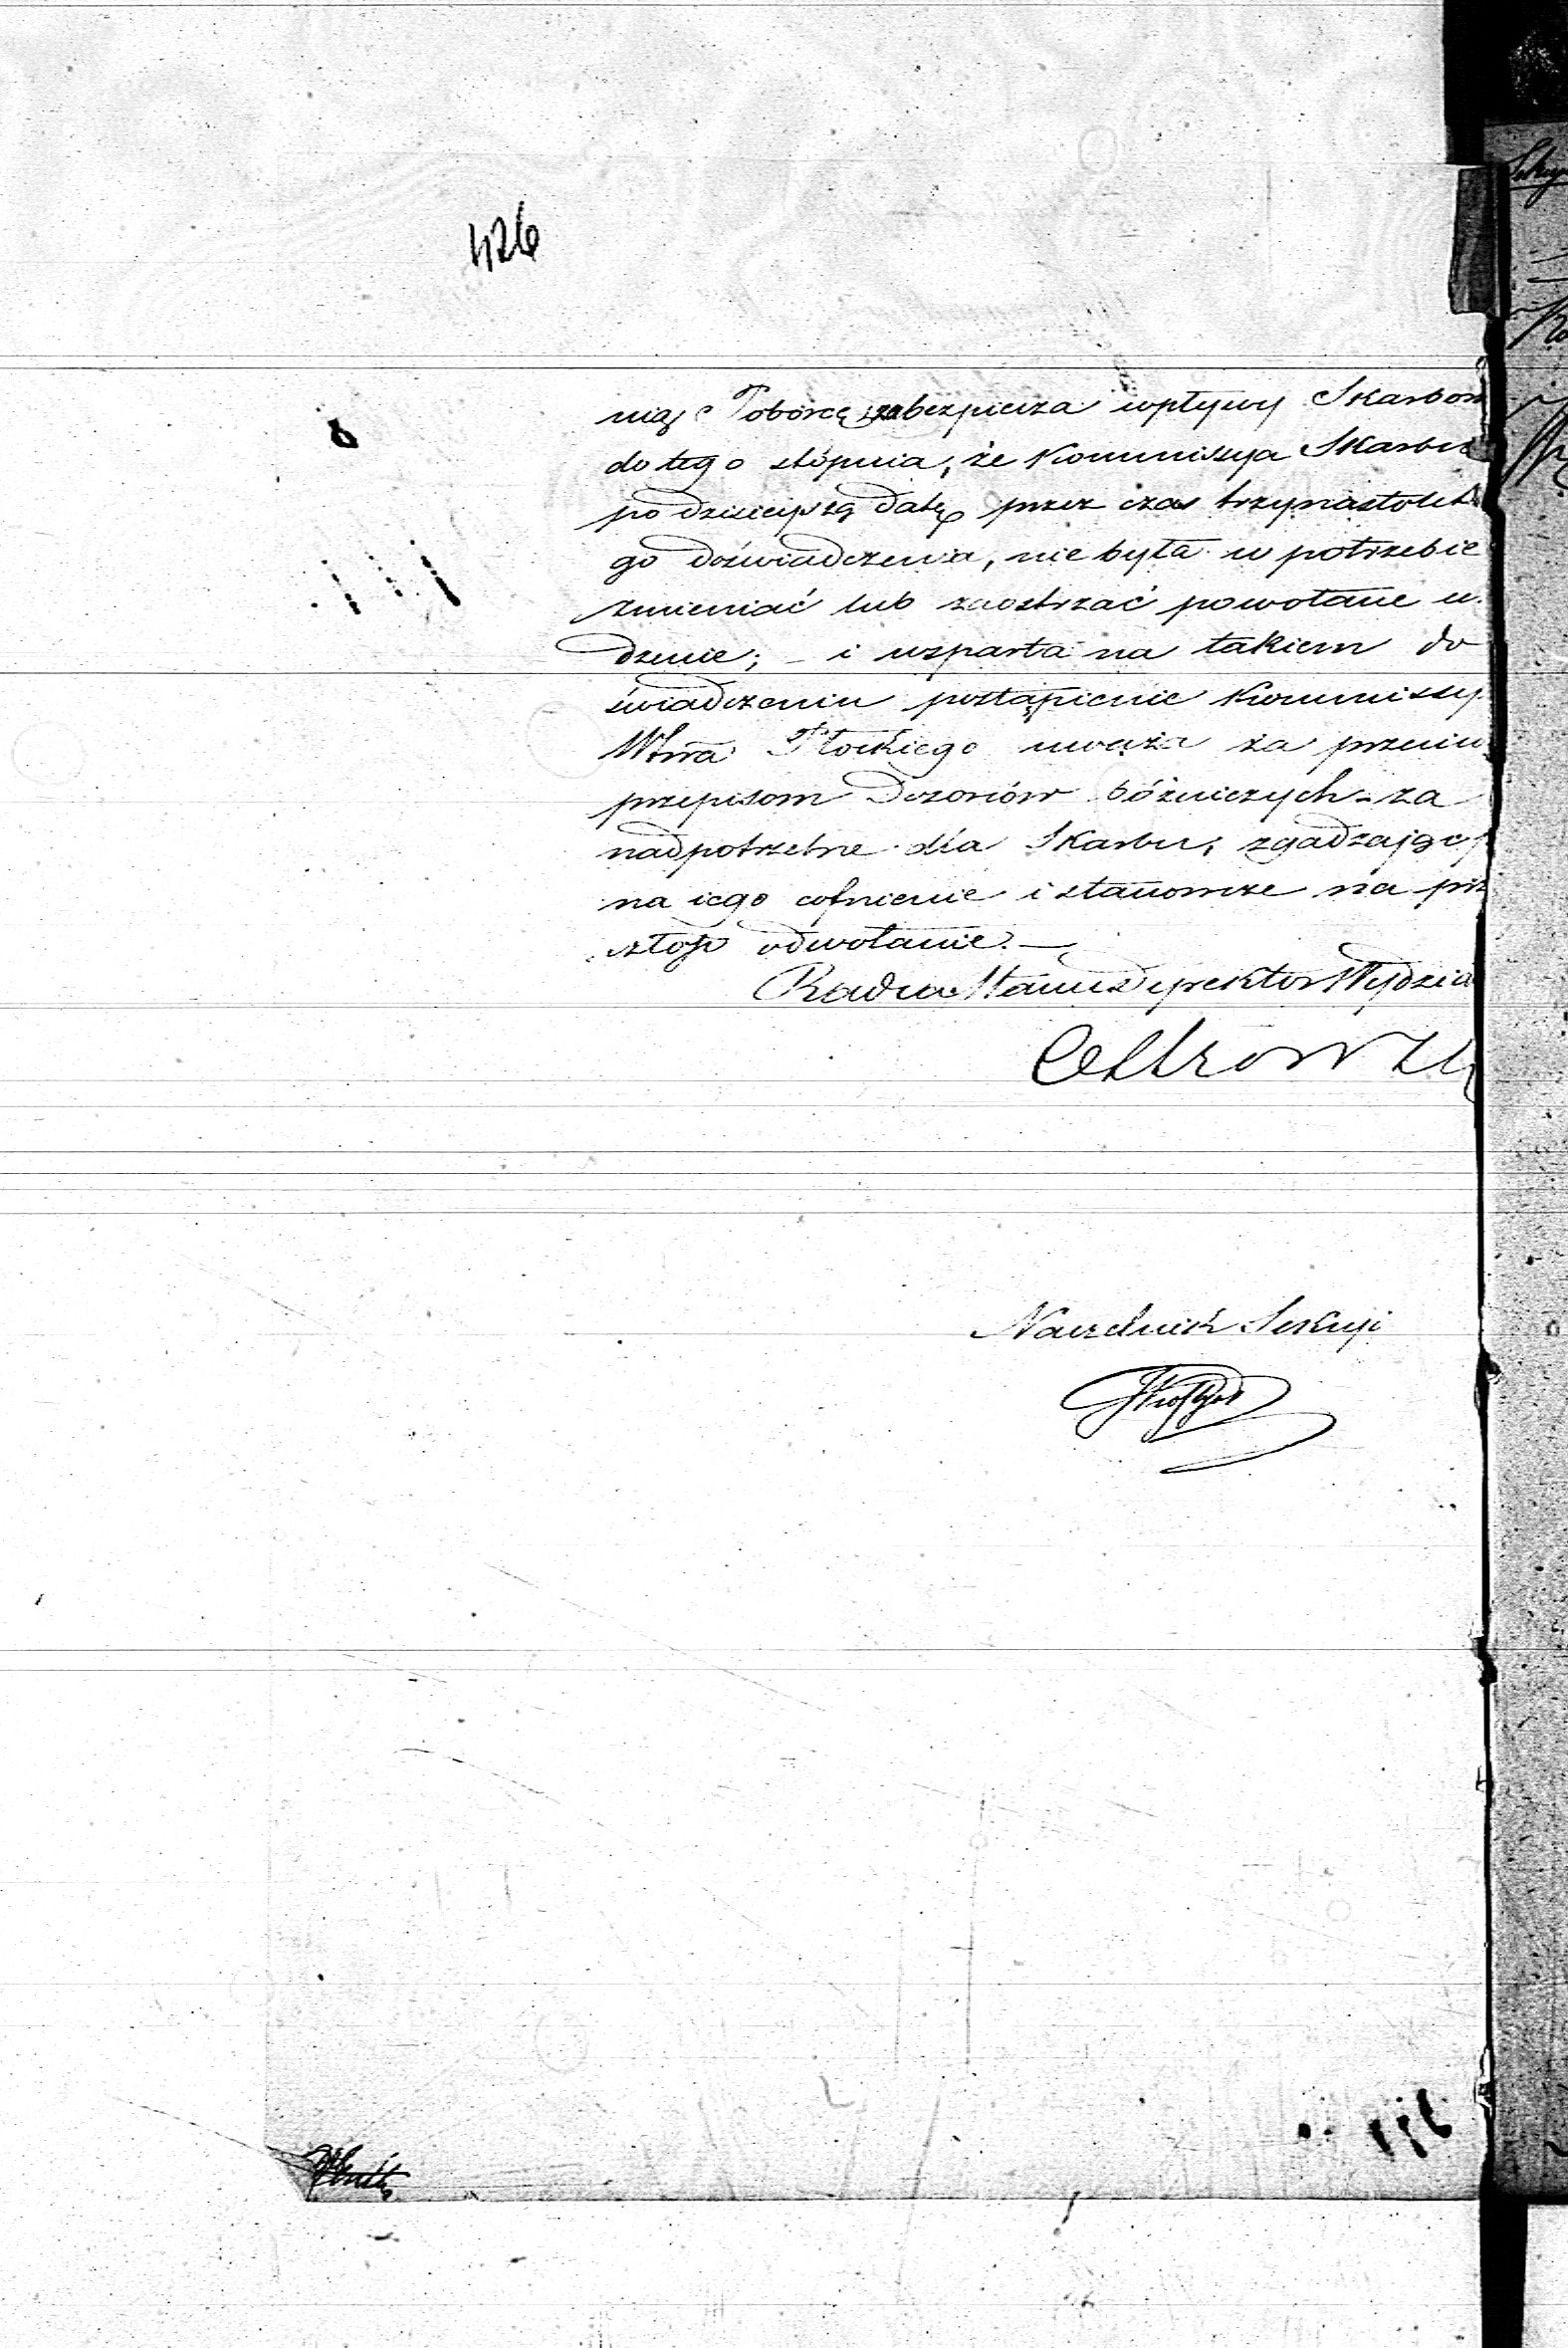 426
nią Poborcę zabezpiecza wpływy Skarbow
do tego stópnia, że Kommissya Skarbu
po dzisiejszą datę przez czas trzynastolet
go doświadczenia, nie była w potrzebie
zmieniać lub zaostrzać powołane u
dzenie; – i wsparta na takiem do
świadczeniu postąpienie Kommissy
Wtwa Płockiego uważa za przeciw
przepisom Dozorów bóżniczych – za
nadpotrzebne dla Skarbu, zgadzając
na iego cofnienie i stanowcze na prz
szłość odwołanie. —
Radca Stanu Dyrektor Wydzia
Naczelnik Sekcyi